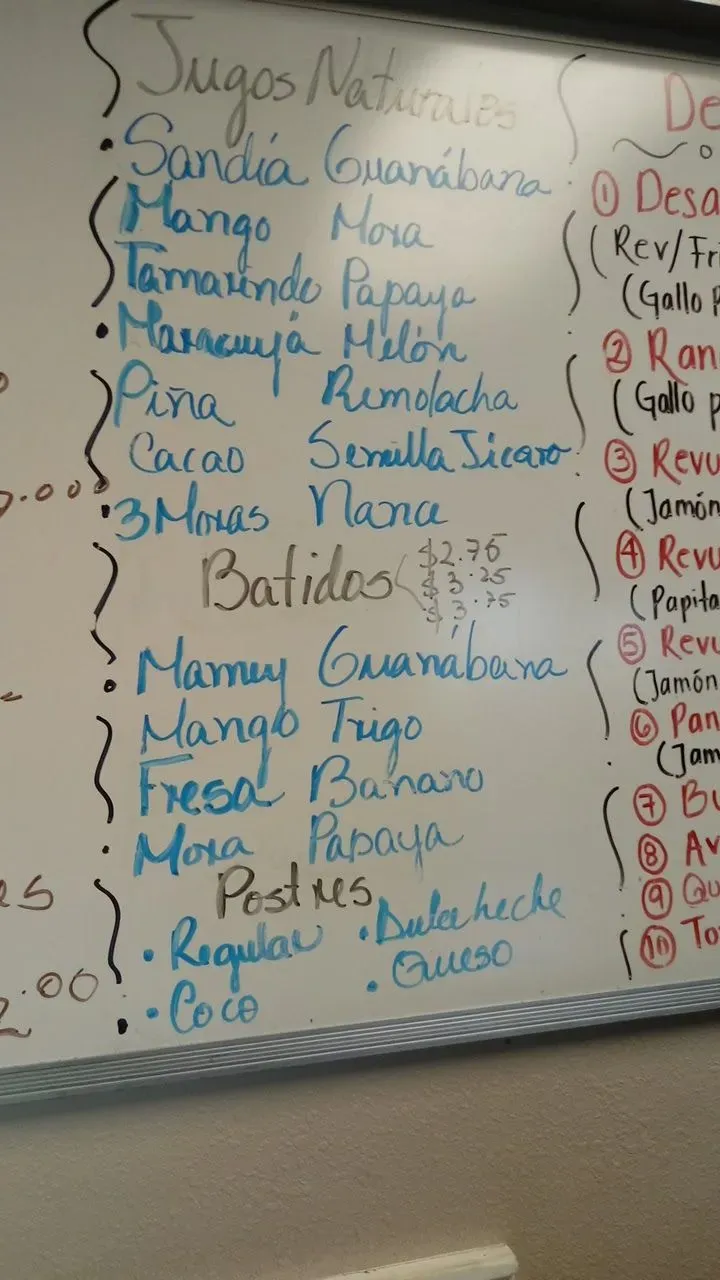 Jugos Naturales
Sandía Guanábana
Mango Mora
Tamarindo Papaya
Maracuyá Melón
Piña Remolacha
Cacao Semilla Jicaro
3 Moras Nana
Batidos $2.75
$3.25
$3.75
Mamey Guanábana
Mango Trigo
Fresa Banano
Mora Papaya
Postres
Regular
Coco
Queso
De
① Desa
(Rev/Fri
(Gallo p
② Ran
(Gallo p
③ Revu
(Jamón
④ Revu
(Papita
⑤ Revu
(Jamón
⑥ Pan
(Jam
⑦ Bu
⑧ Av
⑨ Qu
⑩ To
.000
es
2.00